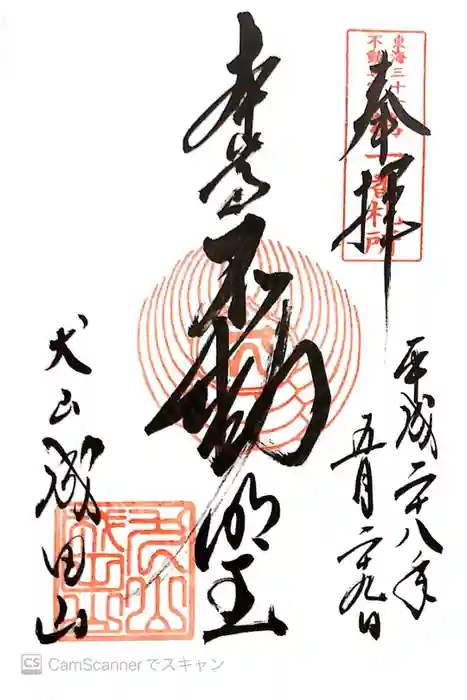 奉拝
東海三十六
不動尊
一番札所
平成二十八年
五月二十九日
本尊不動明王
犬山成田山
CS CamScannerでスキャン